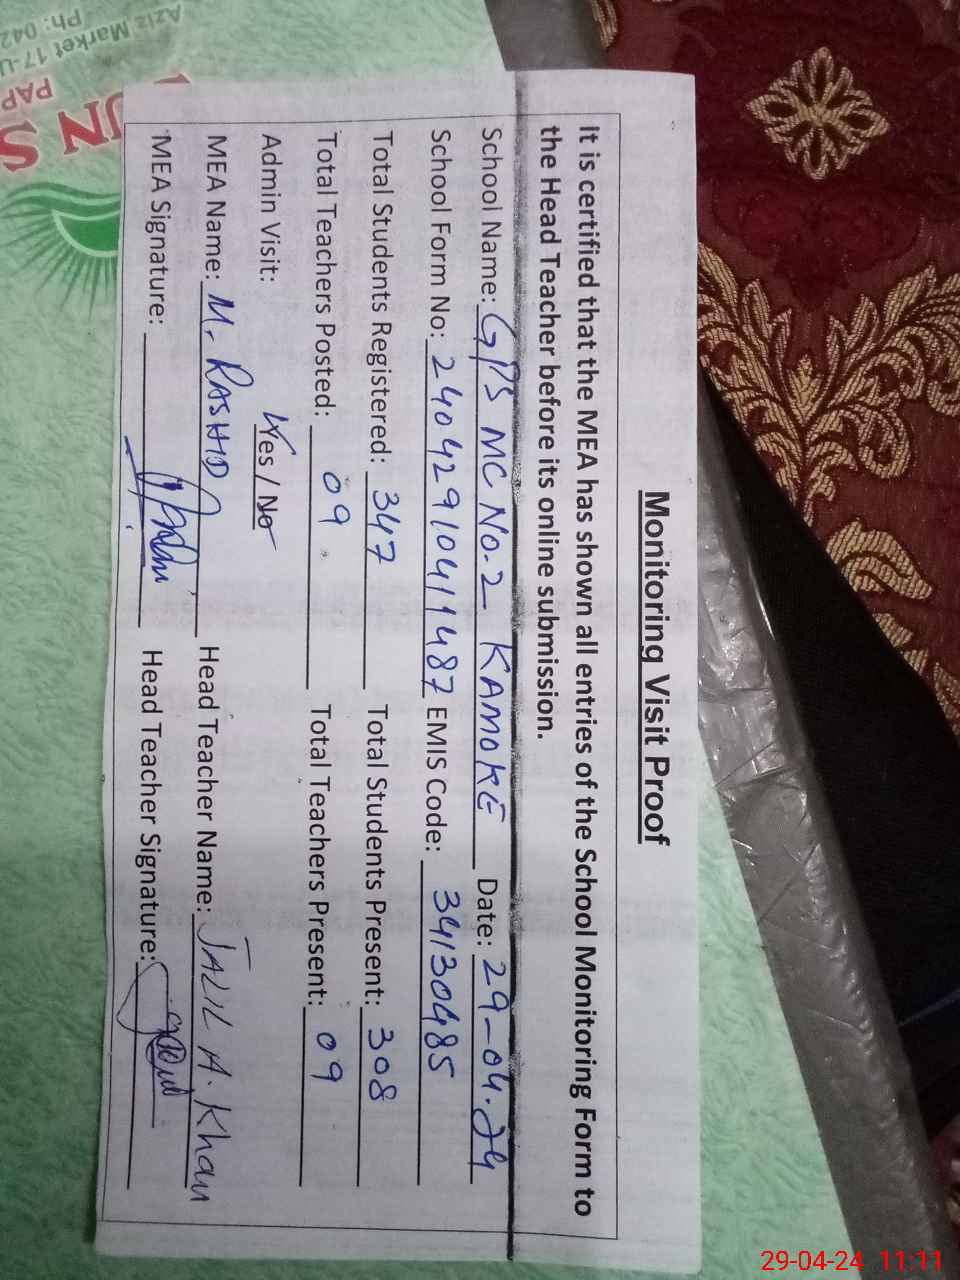 Monitoring Visit Proof
It is certified that the MEA has shown all entries of the School Monitoring Form to
the Head Teacher before its online submission.
School Name: GPS MC No.2 KAMOKE Date: 29-04-24
School Form No: 240429104141487 EMIS Code: 34130485
Total Students Registered: 347 Total Students Present: 308
Total Teachers Posted: 09 Total Teachers Present: 09
Admin Visit: Yes / No
MEA Name: M. RASHID Head Teacher Name: JALIL A. Khan
MEA Signature: Head Teacher Signature:
Aziz Market 17-U
Ph: 042
PAP
UN S
29-04-24 11:11